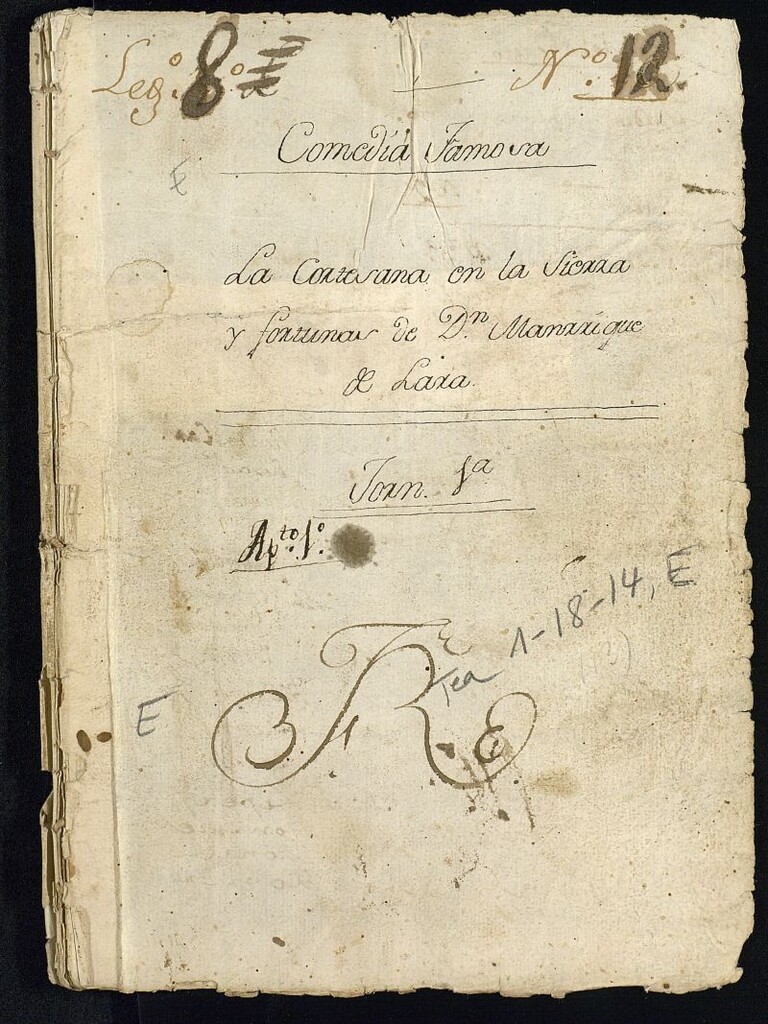 Leg.º 8º
Nº. 12.
Comedia Famosa
E
La Cortesana en la Sierra
y fortunas de D.n Manrrique
de Lara.
Jorn. 1ª
Ap.to 1º.
Tea 1-18-14, E
E